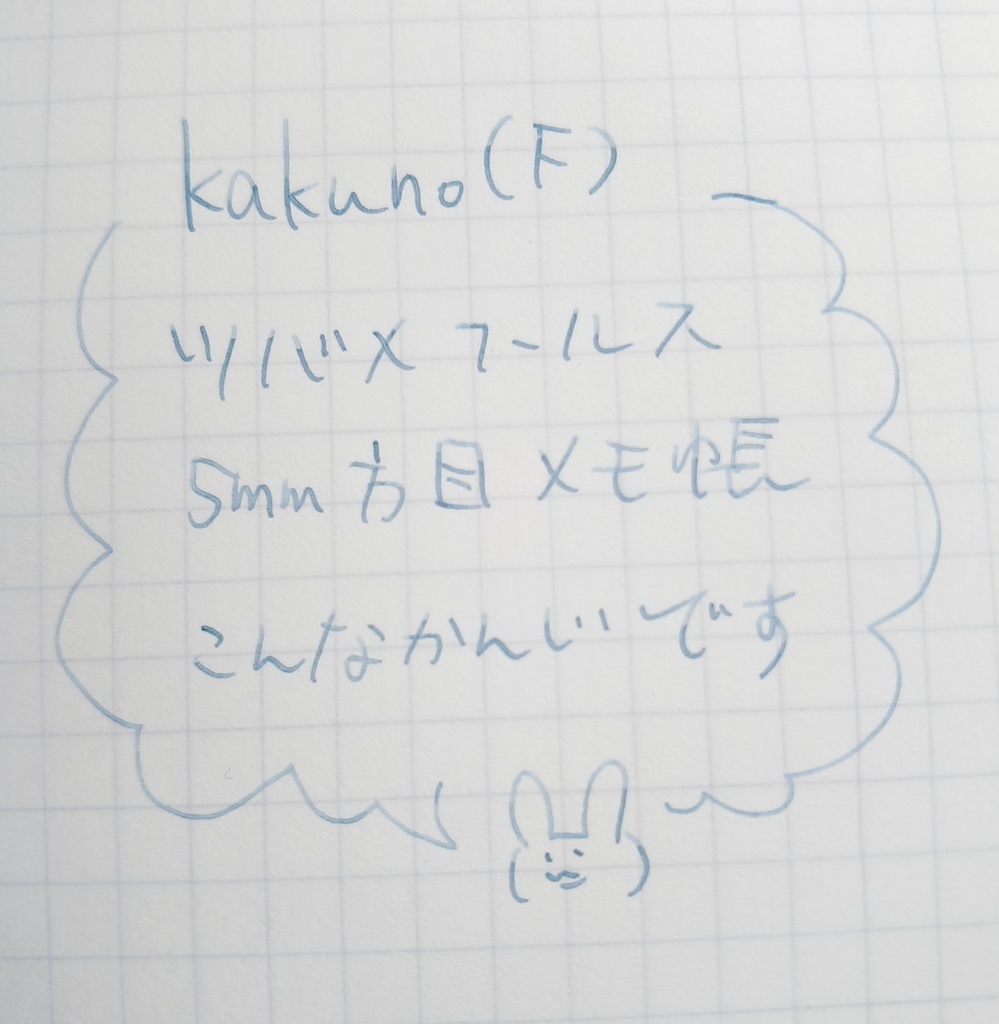 kakuno(F)
ツバメフールス
5mm方目メモ帳
こんなかんじです